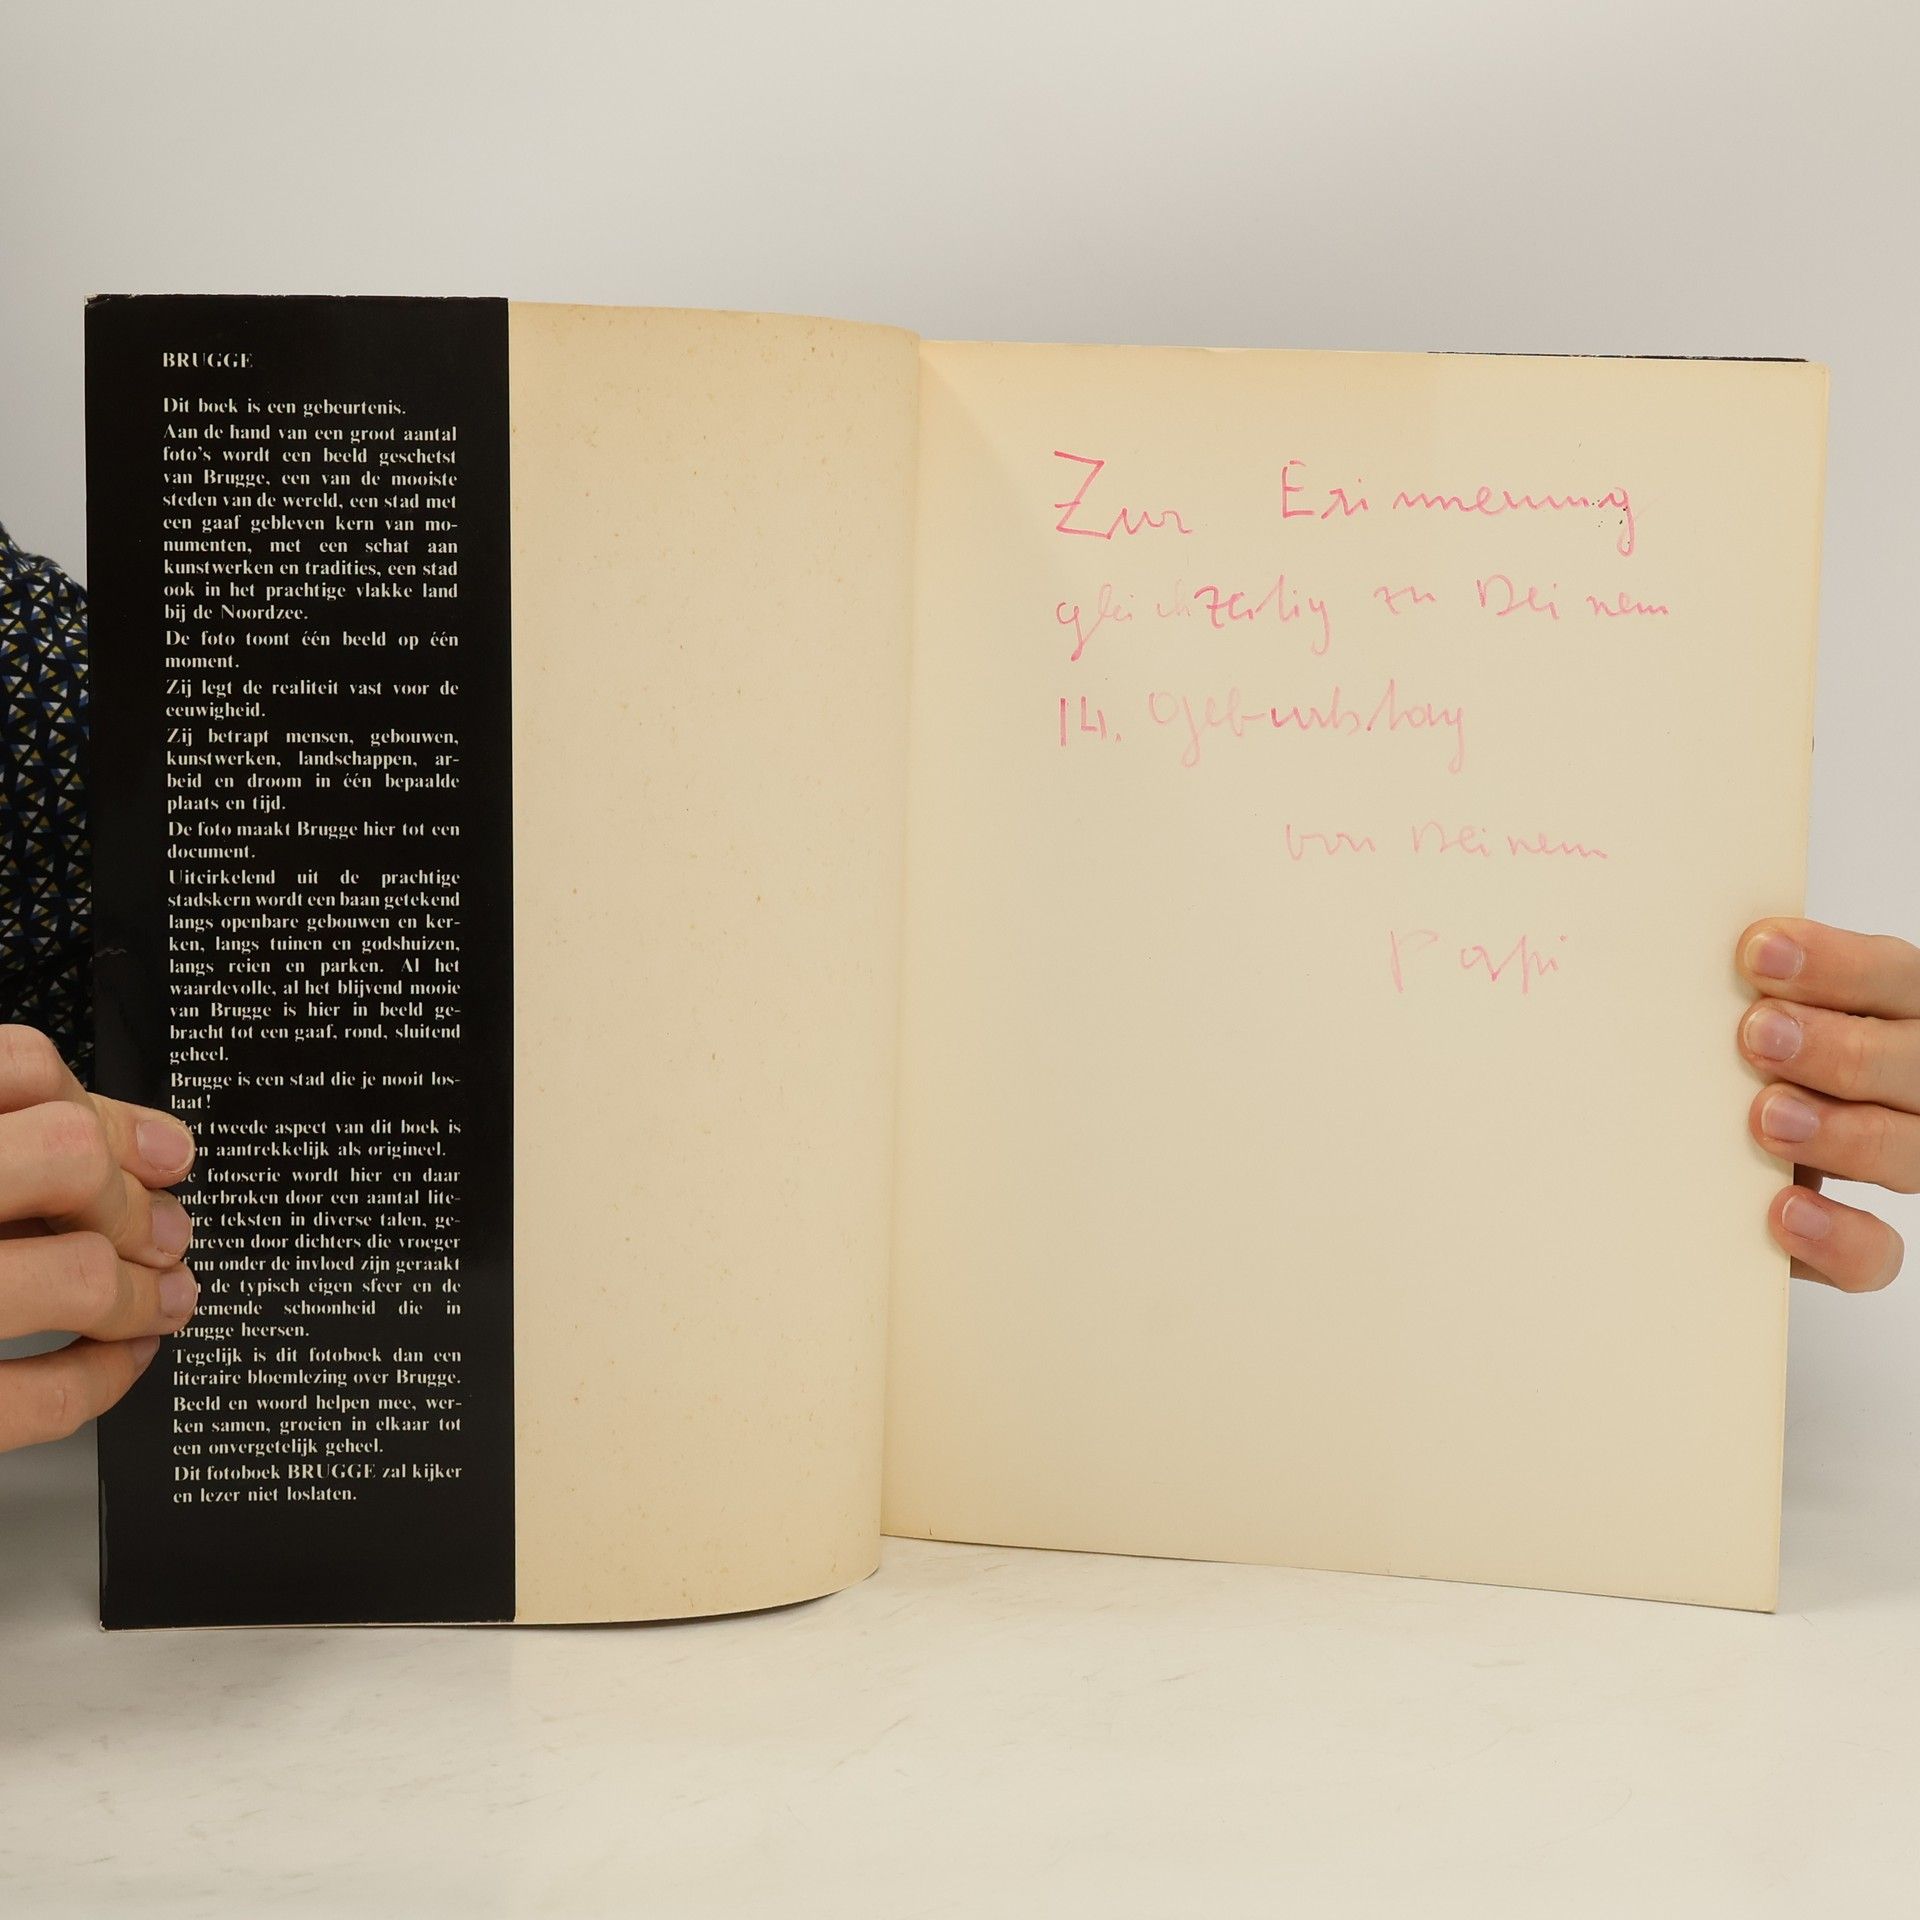 BRUGGE
Dit boek is een gebeurtenis.
Aan de hand van een groot aantal
foto's wordt een beeld geschetst
van Brugge, een van de mooiste
steden van de wereld, een stad met
een gaaf gebleven kern van mo-
numenten, met een schat aan
kunstwerken en tradities, een stad
ook in het prachtige vlakke land
bij de Noordzee.
De foto toont één beeld op één
moment.
Zij legt de realiteit vast voor de
eeuwigheid.
Zij betrapt mensen, gebouwen,
kunstwerken, landschappen, ar-
beid en droom in één bepaalde
plaats en tijd.
De foto maakt Brugge hier tot een
document.
Uitcirkelend uit de prachtige
stadskern wordt een baan getekend
langs openbare gebouwen en ker-
ken, langs tuinen en godshuizen,
langs reien en parken. Al het
waardevolle, al het blijvend mooie
van Brugge is hier in beeld ge-
bracht tot een gaaf, rond, sluitend
geheel.
Brugge is een stad die je nooit los-
laat!
tweede aspect van dit boek is
aantrekkelijk als origineel.
fotoserie wordt hier en daar
onderbroken door een aantal lite-
teksten in diverse talen, ge-
door dichters die vroeger
nu onder de invloed zijn geraakt
de typisch eigen sfeer en de
schoonheid die in
Brugge heersen.
Tegelijk is dit fotoboek dan een
literaire bloemlezing over Brugge.
Beeld en woord helpen mee, wer-
ken samen, groeien in elkaar tot
een onvergetelijk geheel.
Dit fotoboek BRUGGE zal kijker
en lezer niet loslaten.
Zur Erinnerung
gleichzeitig zu Deinem
14. Geburtstag
von Deinem
Papi